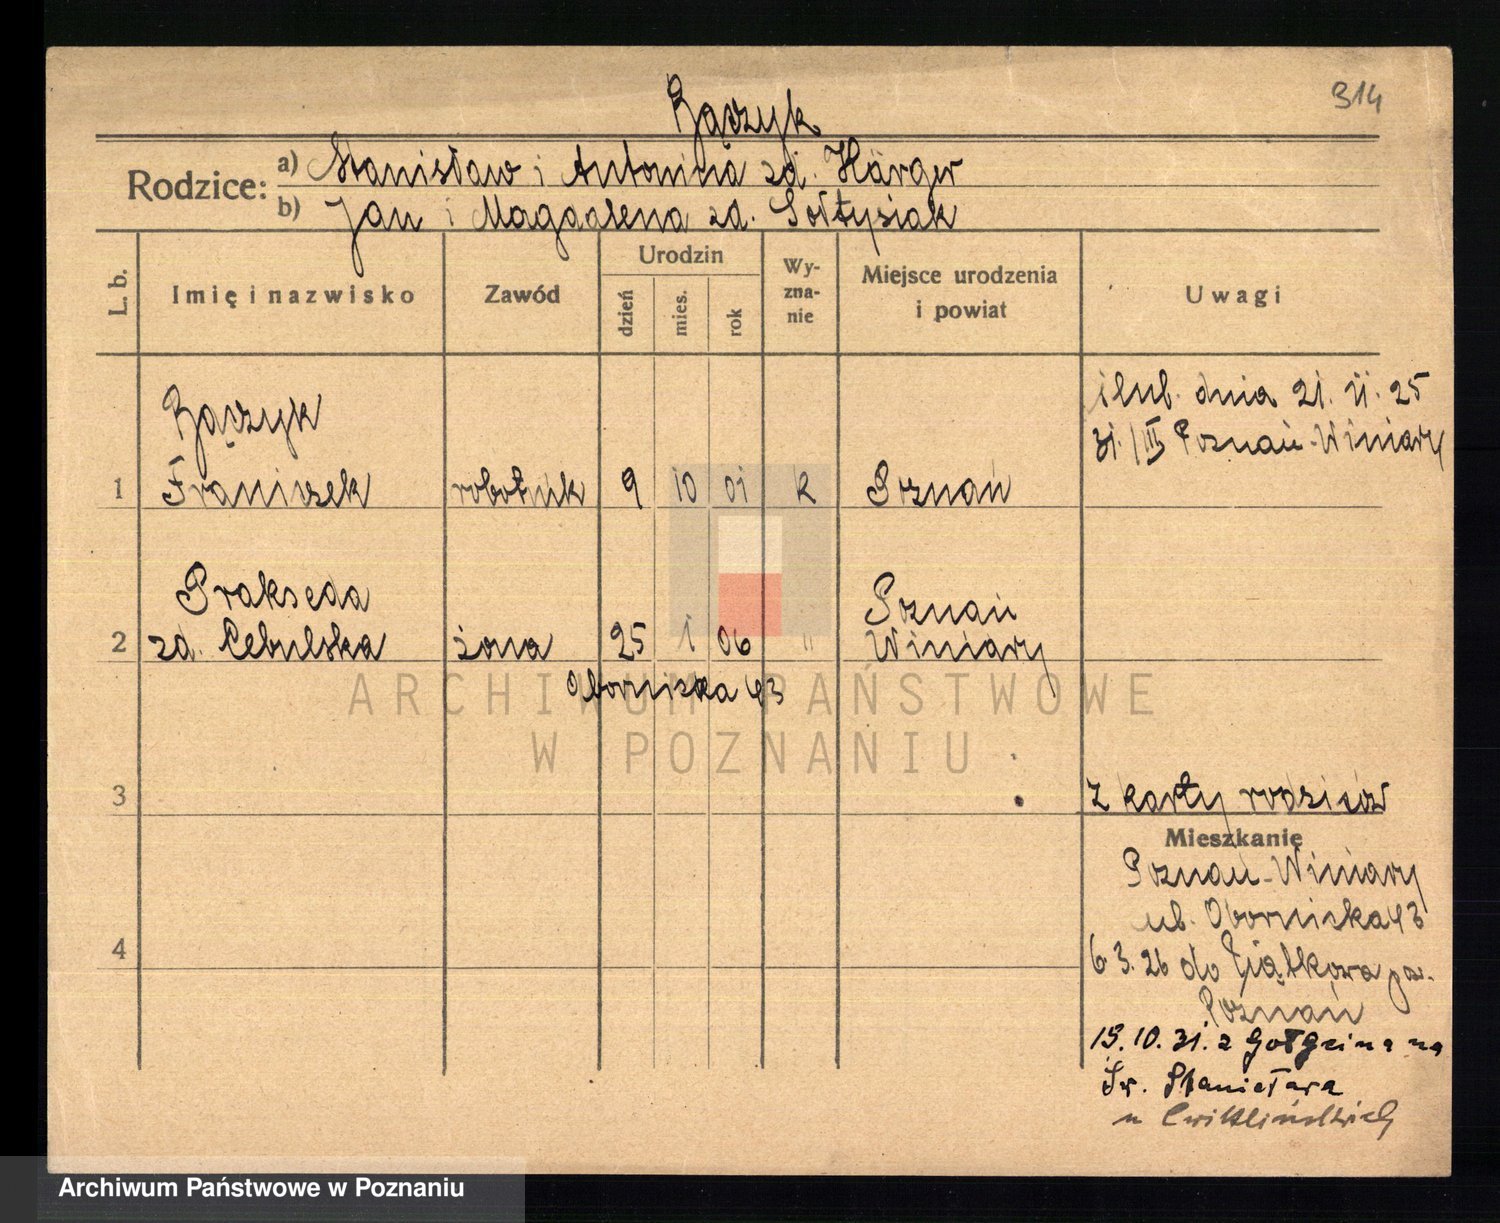 314
Bączyk
Rodzice:
a) Stanisław i Antonina zd. Härger
b) Jan i Magdalena zd. Sołtysiak
L. b.
Imię i nazwisko
Zawód
Urodzin
dzień
mies.
rok
Wy-
zna-
nie
Miejsce urodzenia
i powiat
Uwagi
ślub. dnia 21. II. 25
31./III Poznań-Winiary
Bączyk
1 Franiszek robotnik 9 10 01 k Poznań
Prakseda Poznań
2 zd. Cebulska żona 25 1 06 " Winiary
Obornicka 43
ARCHIWUM PAŃSTWOWE
W POZNANIU
3
z karty rodziców
Mieszkanie
Poznań-Winiary
ul. Obornicka 43
4
6.3.26 do Piątkowa pow.
Poznań
19.10.31. z Gołęcina na
Św. Stanisława
u
Archiwum Państwowe w Poznaniu